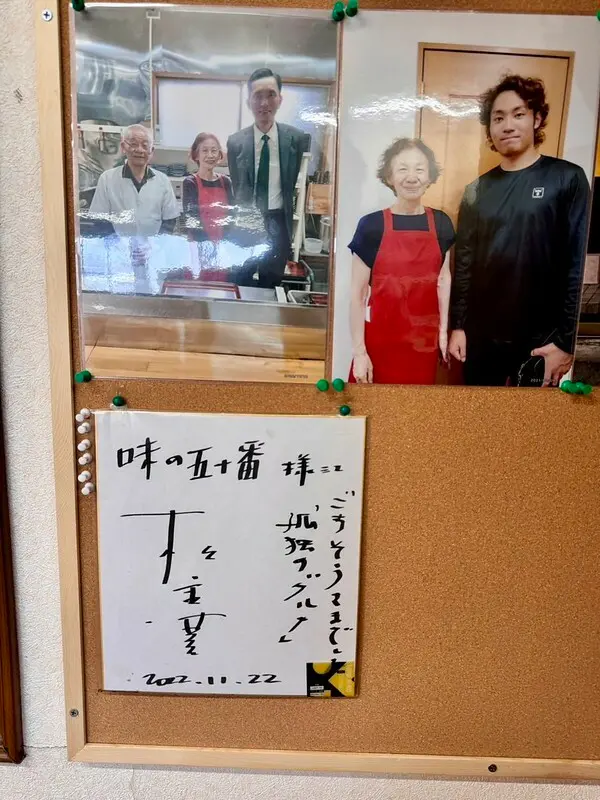 味の五十番 様江
ごちそうさまでした
「孤独のグルメ」
2022.11.22